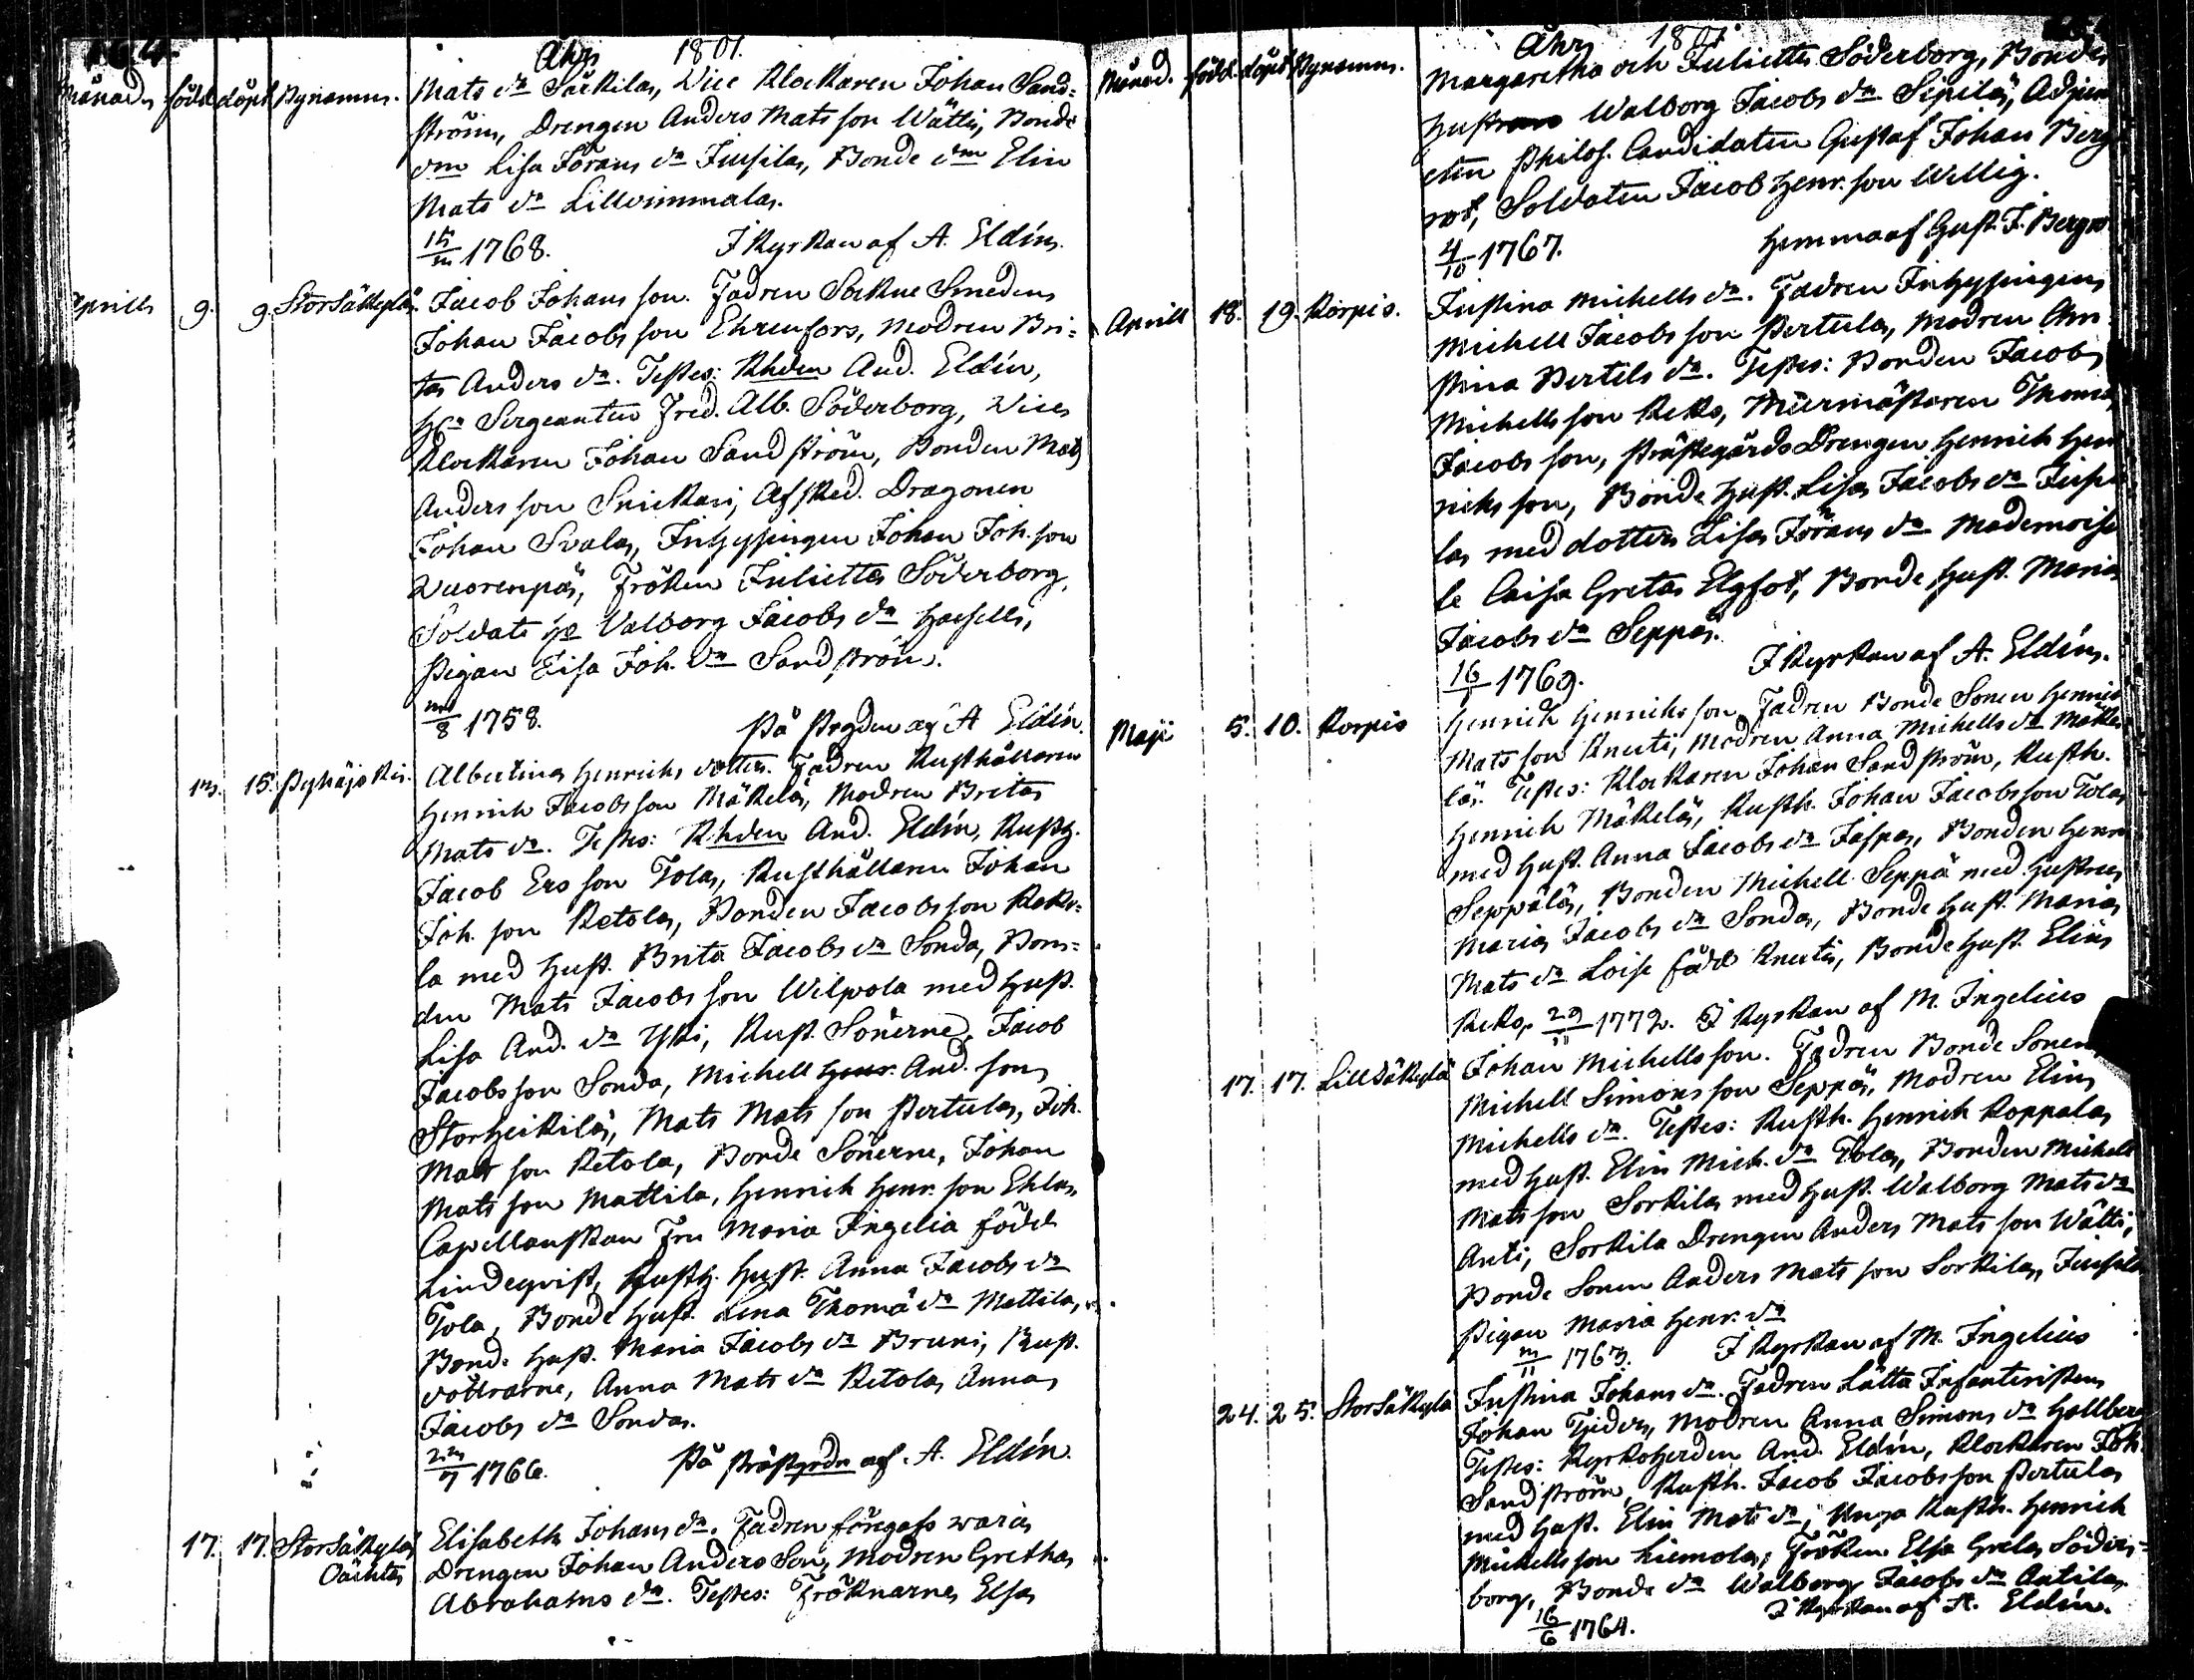 164.
Åhr 1801.
Månad. född. döpt. Bynamn.
Mats dr Sarkila, Vice Klockaren Johan Sand=
ström, Drengen Anders Mats son Wätti, Bonde
drn Lisa Jörans dr Juusila, Bonde drn Elin
Mats dr Lillvimmala.
15/ 1768. I Kyrkan af A. Eldín.
Aprill 9. 9. Storsäkylä. Jacob Johans son. Fadren Sockne Smeden
Johan Jacobs son Ehrenfors, Modren Bri=
ta Anders dr. Testes: Khden And. Eldín,
Hr Sergeanten Fred. Alb. Söderborg, Vice
Klockaren Johan Sandström, Bonden Mats
Anders son Snickari, Afsked. Dragonen
Johan Svala, Inhysingen Johan Joh. son
Vuorenpä, Fröken Julietta Söderborg,
Soldate h. Valborg Jacobs dr
Pigan Lisa Joh. dr Sandström.
/8 1758. På Prgden af A Eldín.
13. 15. Pyhäjoki. Albertina Henrichs dotter. Fadren Rusthållaren
Henrich Jacobs son Mäkelä, Modren Brita
Mats dr. Testes: Khden And. Eldín, Rusth.
Jacob Ers son Tola, Rusthållaren Johan
Joh. son Ketola, Bonden Jacobs son Keko=
la med Hust. Brita Jacobs dr Sonda, Bon=
den Mats Jacobs son Wilpola med Hust.
Lisa And. dr Yski, Rust. Sönerne, Jacob
Jacobs son Sonda, Michell Henr. And. son
Storheikilä, Mats Mats son Pertula, Joh.
Mats son Ketola, Bonde Sönerne, Johan
Mats son Mattila, Henrich Henr. son Ehla,
Capellanskan Fru Maria Ingelia född
Lindeqvist, Rusth. Hust. Anna Jacobs dr
Tola, Bonde Hust. Lena Thomä dr Mattila,
Bonde Hust. Maria Jacobs dr Bruni, Rust.
döttrarne, Anna Mats dr Ketola Anna
Jacobs dr Sonda.
23/7 1766. På Prästgrdn af A. Eldín.
17. 17. Storsäkylä Elisabeth Johans dr. Fadren föregafs wara
Drengen Johan Anders Son, Modren Gretha
Abrahams dr. Testes: Fröknarne Elsa
Åhr 1801.
Månad. född. döpt. Bynamn.
Margaretha och Julietta Söderborg, Bonde
Hustrun Walborg Jacobs dr Sipilä, Adjun
cten Philos. Candidaten Gustaf Johan Berg
rot, Soldaten Jacob Henr. son Willig.
4/10 1767. Hemma af Gust. J. Bergro
Aprill 18. 19. Korpis. Justina Michells dr. Fadren Inhysingen
Michell Jacobs son Pertula, Modren Chri
stina Bertils dr. Testes: Bonden Jacob
Michells son Keko, Murmästaren Thoma
Jacobs son, PrästegårdsDrengen Henrich Hen
richs son, Bonde Hust. Lisa Jacobs dr Juusi
la med dottren Lisa Jörans dr Mademoisel
le Caisa Greta Elgfot, Bonde Hust. Maria
Jacobs dr Seppä.
16/1 1769. I Kyrkan af A. Eldín.
Maji 5. 10. Korpis Henrich Henrichs son Fadren Bonde Sonen Henrich
Mats son Knuuti, Modren Anna Michells dr Mäke
lä. Testes: Klockaren Johan Sandström, Rusth.
Henrich Mäkelä, Rusth. Johan Jacobs son Tola
med Hust. Anna Jacobs dr Jaspa, Bonden Henr
Seppälä, Bonden Michell Seppä med Hustru
Maria Jacobs dr Sonda, Bonde Hust. Maria
Mats dr Loise född Knuuti, Bonde Hust. Elin
Keko. 29/11 1772. I Kyrkan af M. Ingelius
17. 17. Lillsäkylä Johan Michells son. Fadren Bonde Sonen
Michell Simons son Seppä, Modren Elin
Michells dr. Testes: Rusth. Henrich Koppala
med Hust. Elin Mich. dr Tola, Bonden Michell
Mats son Sorkila med Hust. Walborg Mats dr
Anti, Sorkila Drengen Anders Mats son Wätti,
Bonde Sonen Anders Mats son Sorkila, Juusila
Pigan Maria Henr. dr
/11 1763. I Kyrkan af M. Ingelius
24. 25. Storsäkylä Justina Johans dr. Fadren Lätta Infanteristen
Johan Tider, Modren Anna Simons dr Hallberg
Testes: Kyrkoherden And. Eldín, Klockaren Joh.
Sandström, Rusth. Jacob Jacobs son Pertula
med Hust. Elin Mats dr, Unga Rusth. Henrich
Michells son Liemola, Fröken Elsa Greta Söder=
borg, Bonde dr Walborg Jacobs dr Antila.
16/6 1764. I Kyrkan af A. Eldín.